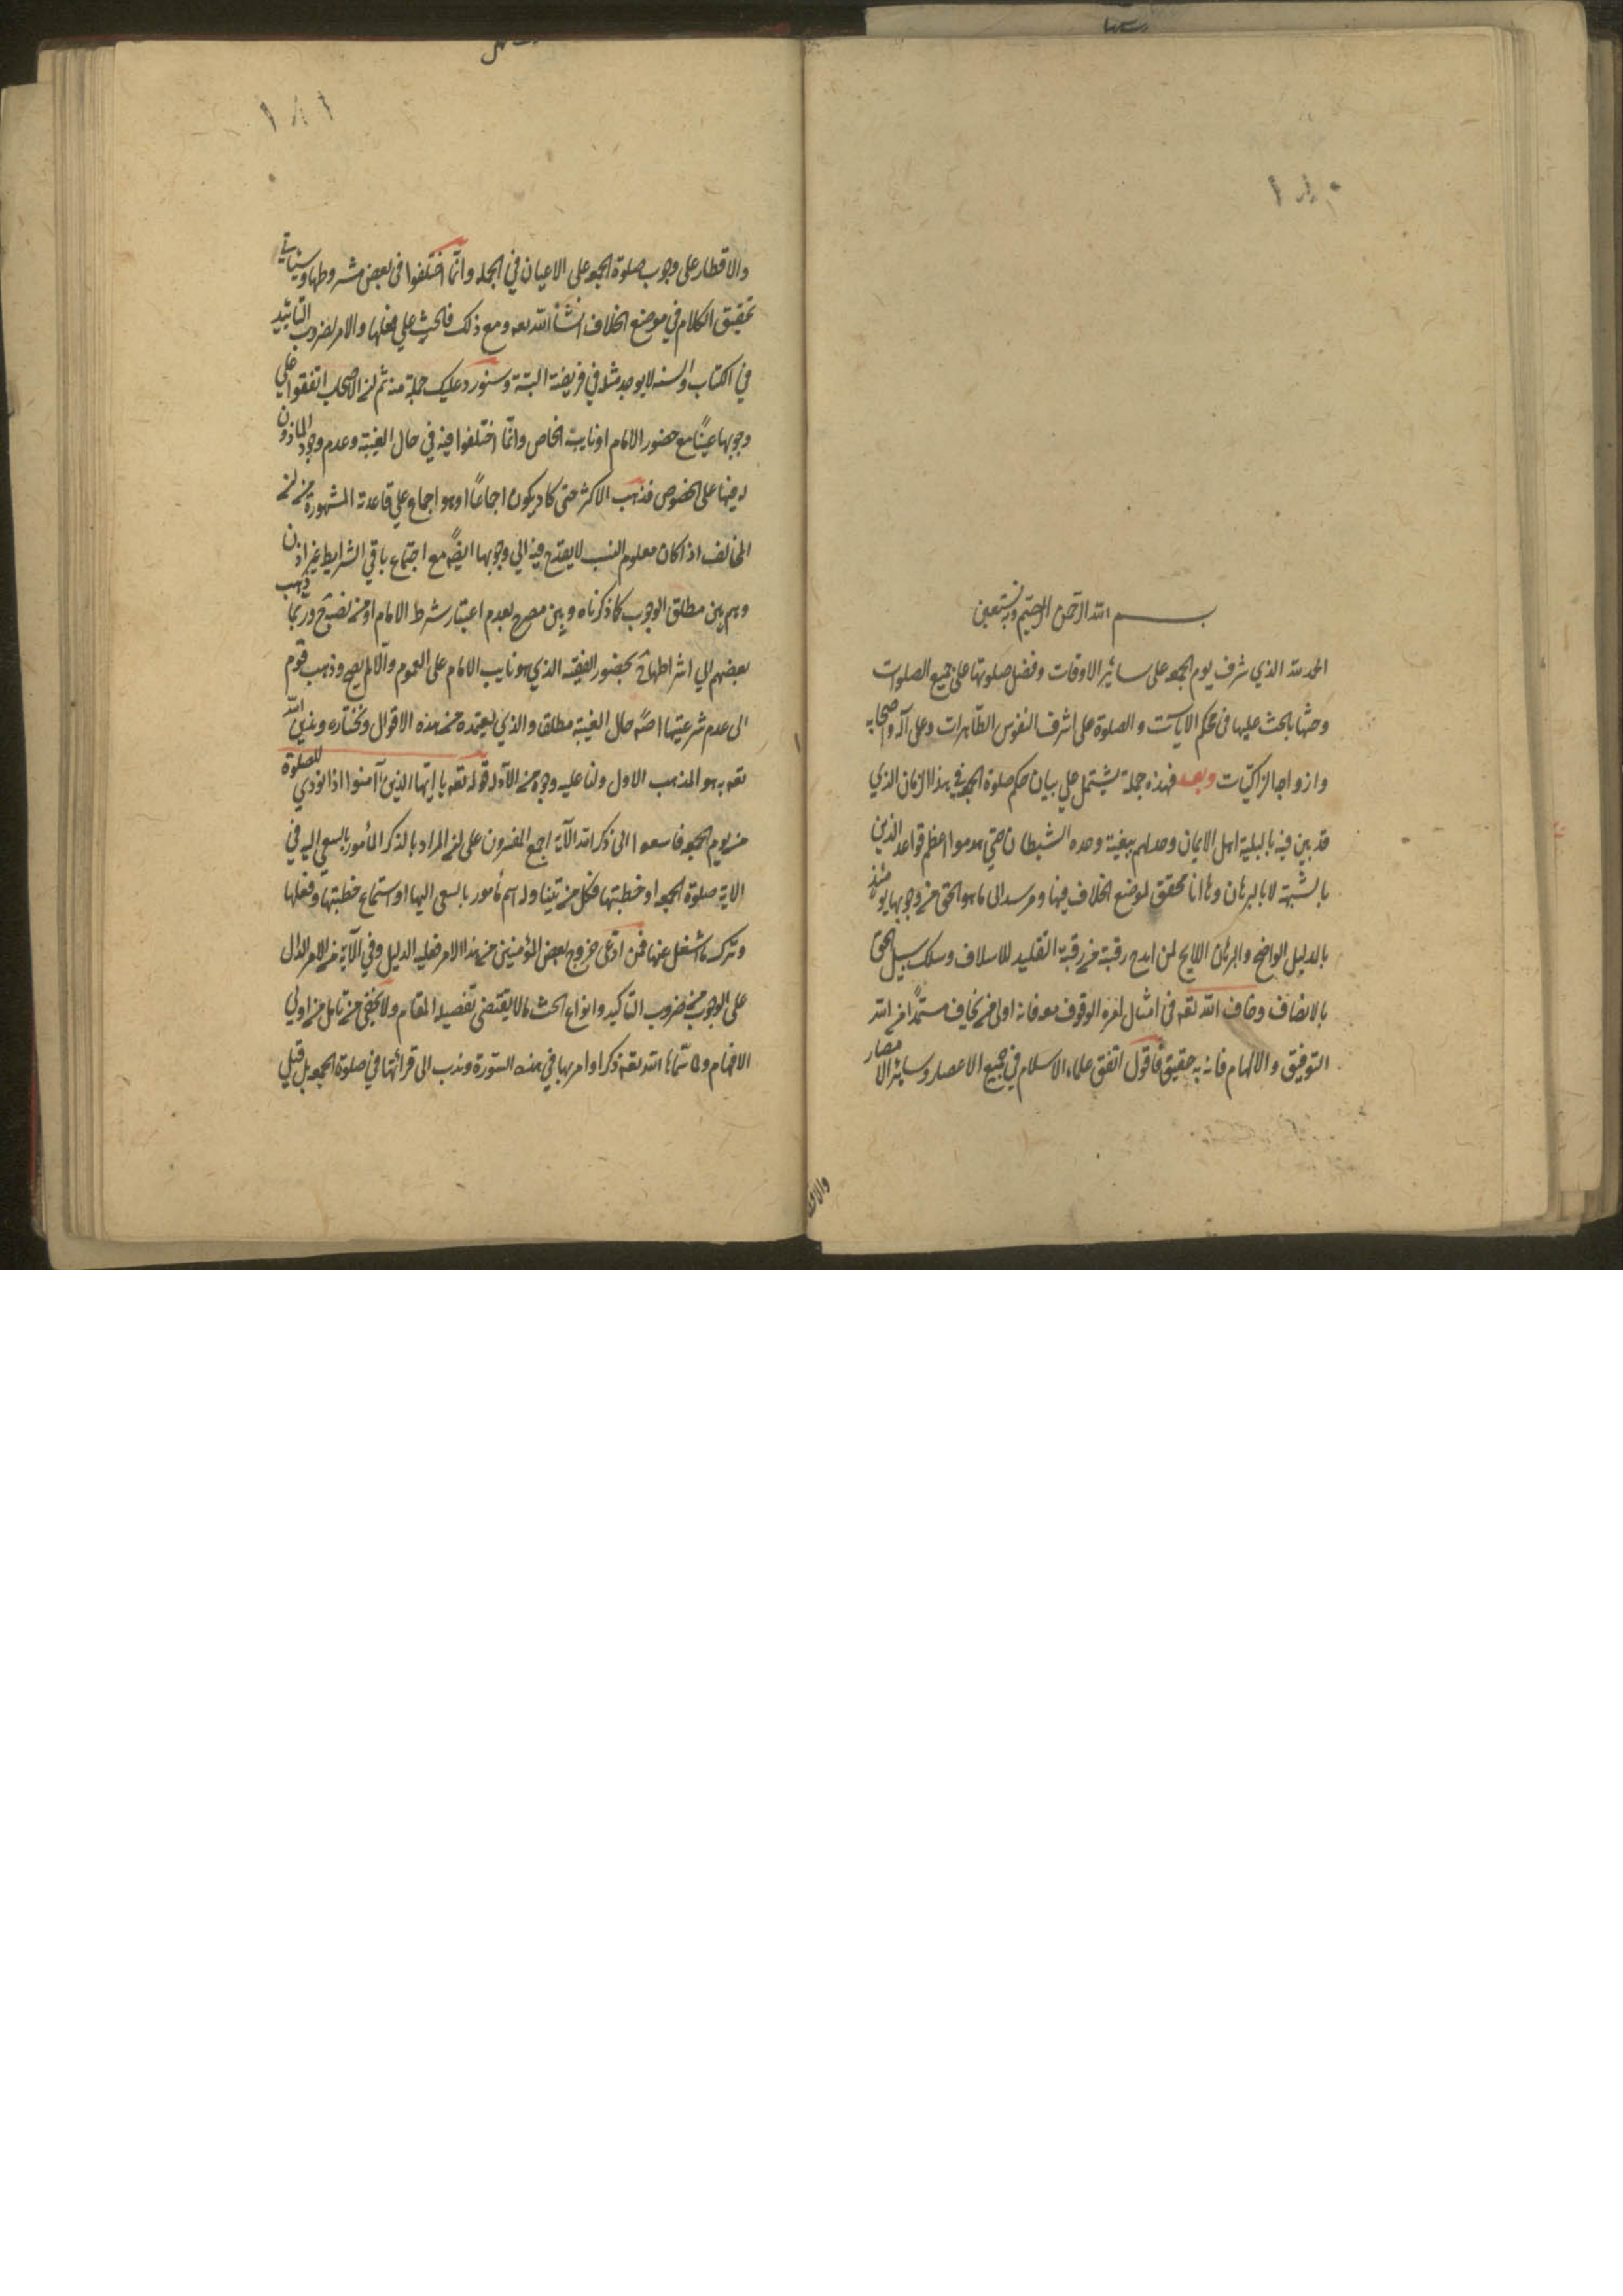 بسم الله الرحمن الرحيم وبه نستعين
الحمد لله الذي شرف يوم الجمعه على سائر الاوقات وفضل صلوتها على جميع الصلوات
وحثنا بالحث عليها في محكم الآيات والصلوة على اشرف النفوس الطاهرات وعلى آله واصحابه
وازواجه الزاكيات وبعد فهذه جملة يشتمل علي بيان حكم صلوة الجمعه في هذا الزمان الذي
قد فيه بالبلية اهل الايمان وحدهم الشيطان حتي هدموا اعظم قواعد الدين
بالشبهة لا بالبرهان وها انا محقق لموضع الخلاف فيها ومرسد الى ما هو الحق من وجوبها يومئذ
بالدليل الواضح والبرهان اللايح لمن رقبته من رقبة التقليد للاسلاف وسلك سبيل الحق
بالانصاف وخاف الله تعه في امثال الوقوف معه فانه اولى من يخاف مستمدا من الله
التوفيق والالهام فانه به حقيق فاقول اتفق علماء الاسلام في جميع الاعصار وساير الامصار
والاق
١٨١
والاقطار على وجوب صلوة الجمعه على الاعيان في الجمله وانما اختلفوا في بعض شروطها وسياتي
تحقيق الكلام في موضع الخلاف انشأ الله تعه ومع ذلك فالحث علي فعلها والامر بضروب التاييد
في الكتاب والسنه لا يوجد مثله في فريضة البتة وسنورد عليك جملة منه ثم ان الاصحاب اتفقوا علي
وجوبها عينًا مع حضور الامام او نايبه الخاص وانما اختلفوا فيه في حال الغيبة وعدم وجود الماذون
له فيها على الخصوص فذهب الاكثر حتى كاد يكون اجماعًا او هو اجماع علي قاعدته المشهورة من ان
المخالف اذا كان معلوم النسب لا يقدح فيه الي وجوبها ايضًا مع اجتماع باقي الشرايط غير اذن
وهم بين مطلق للوجوب كما ذكرناه وبين مصرح بعدم اعتبار شرط الامام او من نصبه وربما ذهب
بعضهم الي اشتراطها ح بحضور الفقيه الذي هو نايب الامام على العموم والا لم يصح وذهب قوم
الى عدم شرعيتها اصلًا حال الغيبة مطلقا والذي يعتمده من هذه الاقوال ونختاره وندين الله
تعه به هو المذهب الاول ولنا عليه وجوه من الادلة قوله تعه يا ايها الذين آمنوا اذا نودي للصلوة
من يوم الجمعه فاسعوا الى ذكر الله الآية اجمع المفسرون على ان المراد بالذكر المأمور بالسعي اليه في
الاية صلوة الجمعه او خطبتها فكل من تناوله اسم مأمور بالسعي اليها او استماع خطبتها وفعلها
وترك ما اشغل عنها فمن ادعى خروج بعض المؤمنين من هذا الامر فعليه الدليل وفي الآية من الامر الدال
على الوجوب من ضروب التاكيد وانواع الحث ما لا يقتضي تفصيله المقام ولا يخفى من تامل من اولي
الافهام ولما سماها الله تعه ذكرا وامر بها في هذه السورة وندب الى قرائتها في صلوة الجمعه بل قيل